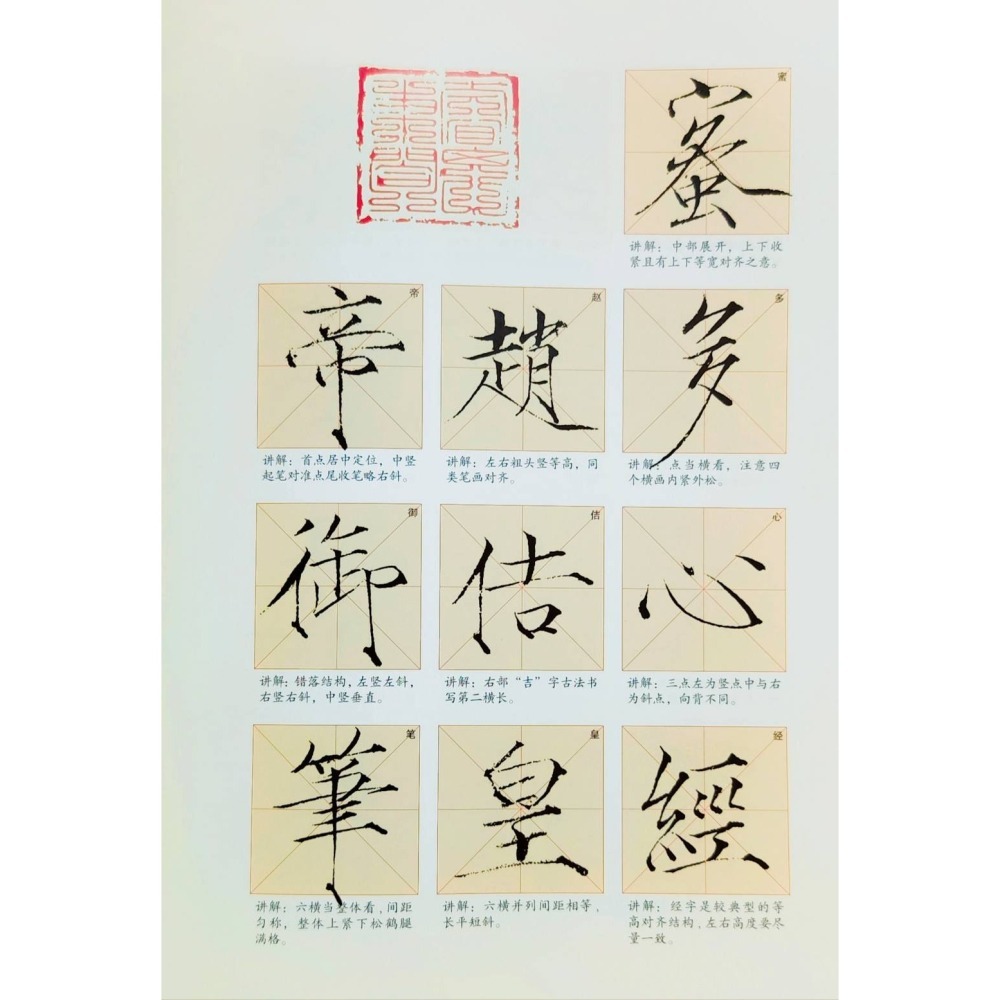 蜜
蜜
讲解：中部展开，上下收
紧且有上下等宽对齐之意。
帝
帝
讲解：首点居中定位，中竖
起笔对准点尾收笔略右斜。
赵
趙
讲解：左右祖头竖等高，同
类笔画对齐。
多
多
讲解：点当横看，注意四
个横画内紧外松。
御
御
讲解：错落结构，左竖左斜，
右竖右斜，中竖垂直。
佶
佶
讲解：右部“吉”字古法书
写第二横长。
心
心
讲解：三点左为竖点中与右
为斜点，向背不同。
笔
筆
讲解：六横当整体看、间距
匀称，整体上紧下松鹤腿
满格。
皇
皇
讲解：六横并列间距相等、
长平短斜。
经
經
讲解：经字是较典型的等
高对齐结构、左右高度要尽
量一致。